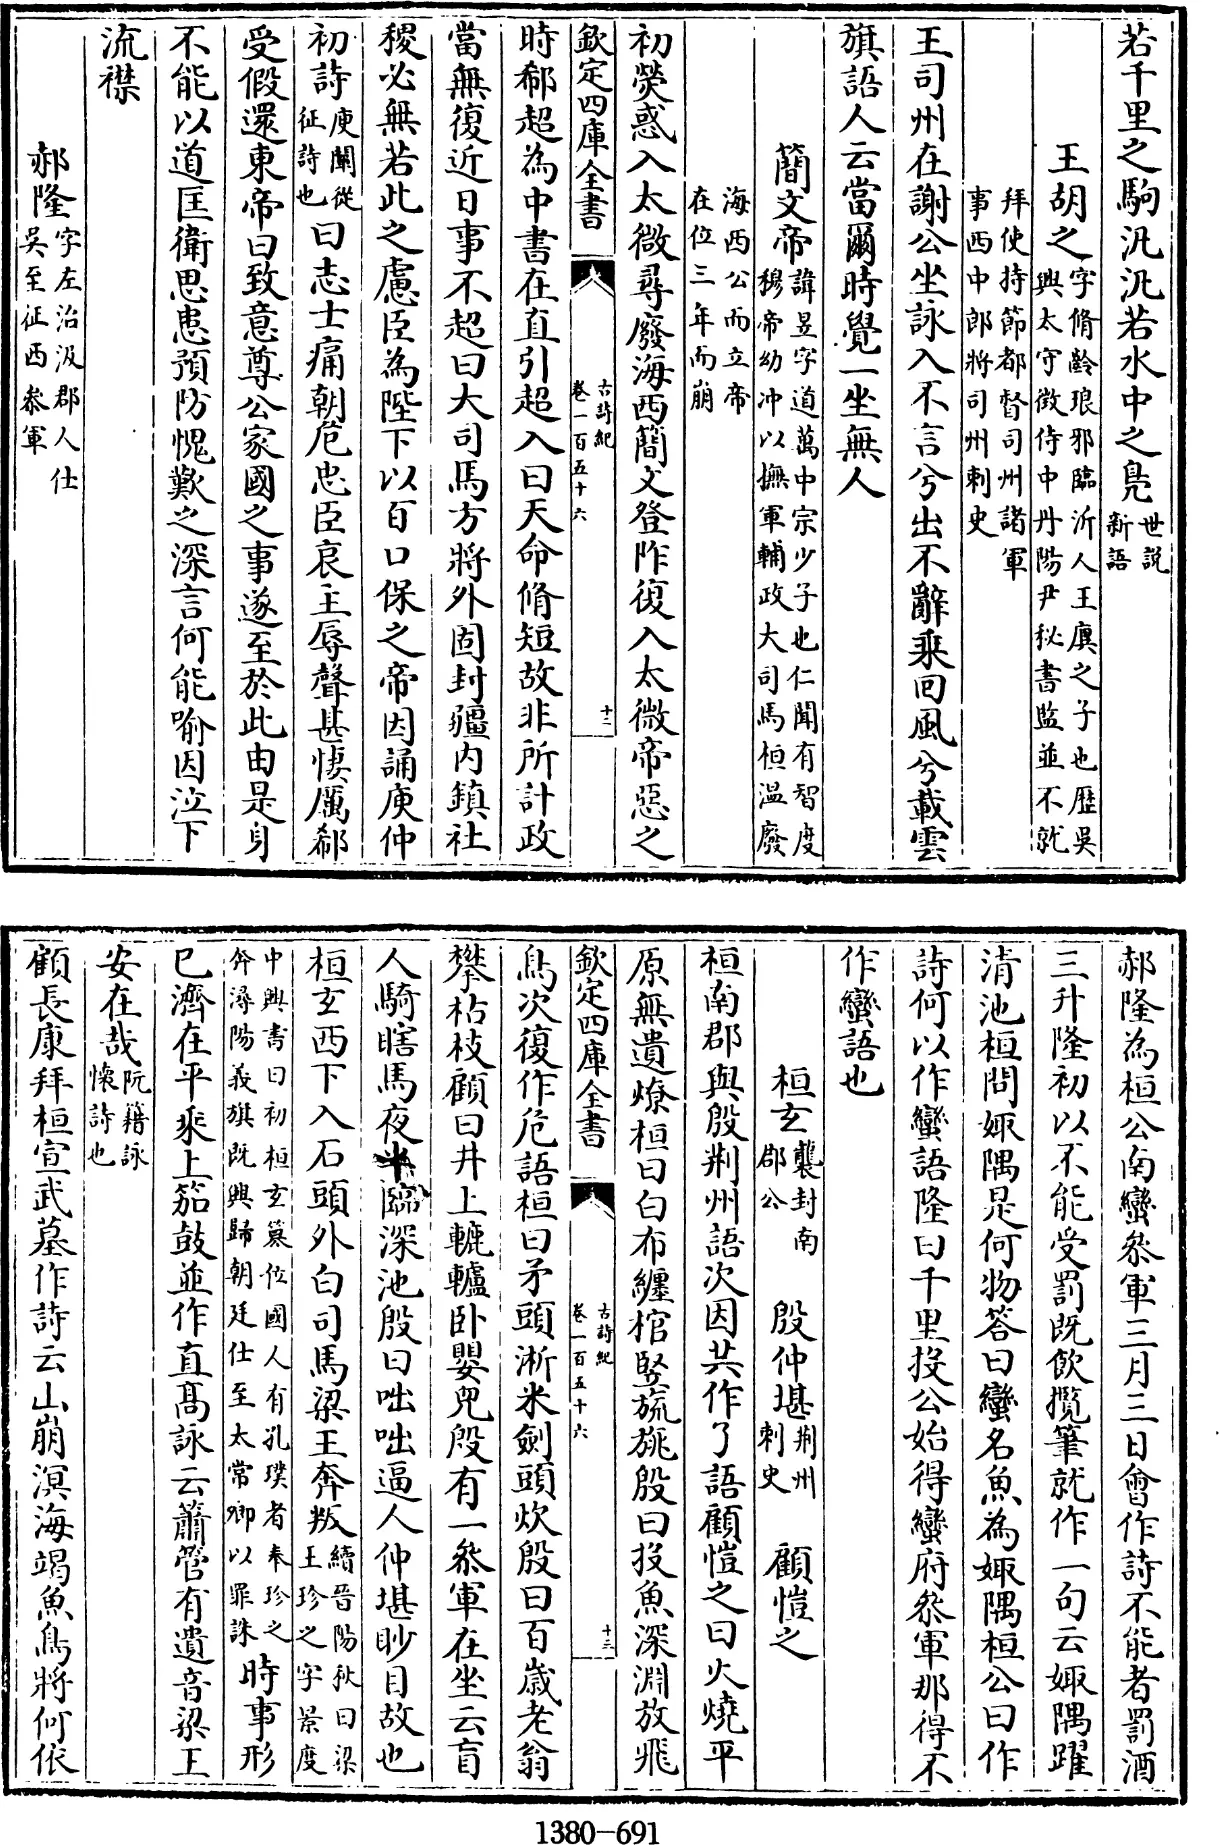 若千里之駒汎汎若水中之鳬世説新語
王胡之字脩齡琅邪臨沂人王廙之子也歴吳興太守徴侍中丹陽尹秘書監並不就
拜使持節都督司州諸軍事西中郎將司州刺史
王司州在謝公坐詠入不言兮出不辭乘回風兮載雲
旗語人云當爾時覺一坐無人
簡文帝諱昱字道萬中宗少子也仁聞有智度穆帝幼冲以撫軍輔政大司馬桓温廢
海西公而立帝在位三年而崩
初熒惑入太微尋廢海西簡文登阼復入太微帝惡之
欽定四庫全書
古詩紀
卷一百五十六
十二
時郗超為中書在直引超入曰天命脩短故非所計政
當無復近日事不超曰大司馬方將外固封疆内鎮社
稷必無若此之慮臣為陛下以百口保之帝因誦庾仲
初詩庾闡從征詩也曰志士痛朝危忠臣哀主辱聲甚悽厲郗
受假還東帝曰致意尊公家國之事遂至於此由是身
不能以道匡衛思患預防愧歎之深言何能喻因泣下
流襟
郝隆字左治汲郡人仕吳至征西叅軍
郝隆為桓公南蠻叅軍三月三日會作詩不能者罰酒
三升隆初以不能受罰既飲攬筆就作一句云娵隅躍
清池桓問娵隅是何物答曰蠻名魚為娵隅桓公曰作
詩何以作蠻語隆曰千里投公始得蠻府叅軍那得不
作蠻語也
桓玄襲封南郡公 殷仲堪荆州刺史 顧愷之
桓南郡與殷荆州語次因共作了語顧愷之曰火燒平
原無遺燎桓曰白布纏棺竪旒旐殷曰投魚深淵放飛
欽定四庫全書
古詩紀
卷一百五十六
十三
鳥次復作危語桓曰矛頭淅米劍頭炊殷曰百歳老翁
攀枯枝顧曰井上轆轤卧嬰兒殷有一叅軍在坐云盲
人騎瞎馬夜半臨深池殷曰咄咄逼人仲堪眇目故也
桓玄西下入石頭外白司馬梁王奔叛續晉陽秋曰梁王珍之字景度
中興書曰初桓玄簒位國人有孔璞者奉珍之奔潯陽義旗既興歸朝廷仕至太常卿以罪誅時事形
已濟在平乘上笳鼓並作直髙詠云簫管有遺音梁王
安在哉阮籍詠懷詩也
顧長康拜桓宣武墓作詩云山崩溟海竭魚鳥將何依
1380-691